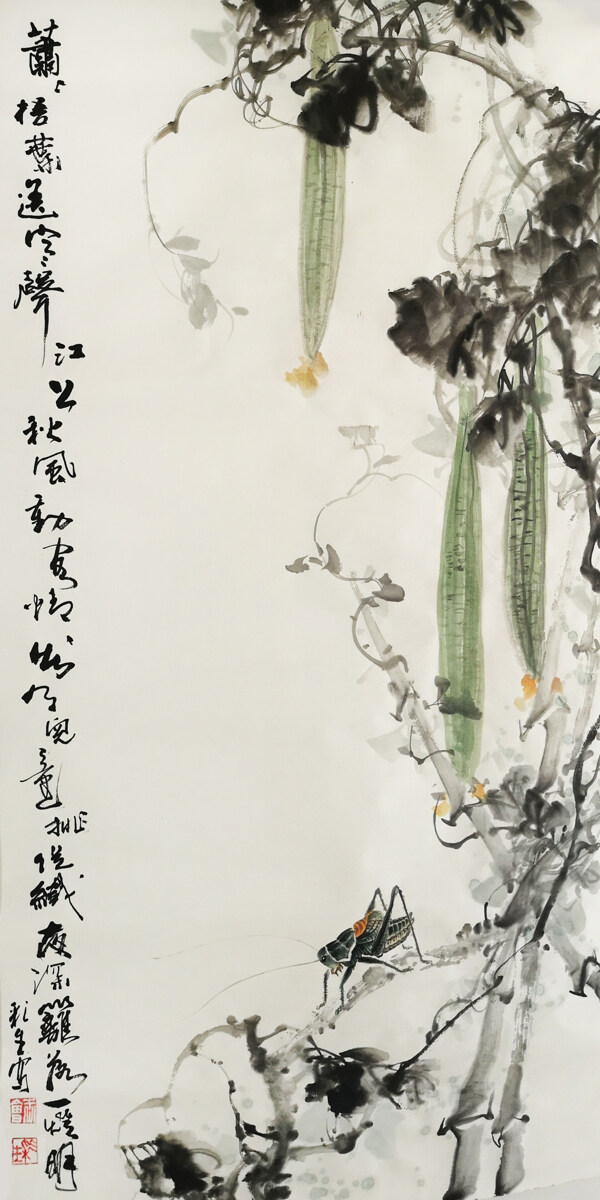 蕭〻梧葉送寒聲江上秋風動客情知有兒童挑促織夜深籬落一燈明